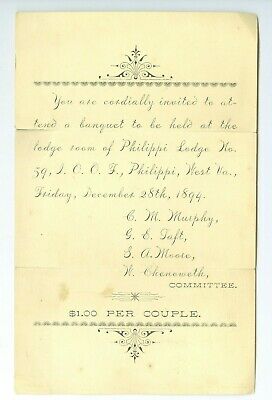 You are cordially invited to at-
tend a banquet to be held at the
lodge room of Philippi Lodge No.
59, I. O. O. F., Philippi, West Va.,
Friday, December 28th, 1894.
C. M. Murphy,
G. E. Taft,
S. A. Moore,
W. Chenoweth,
COMMITTEE.
$1.00 PER COUPLE.